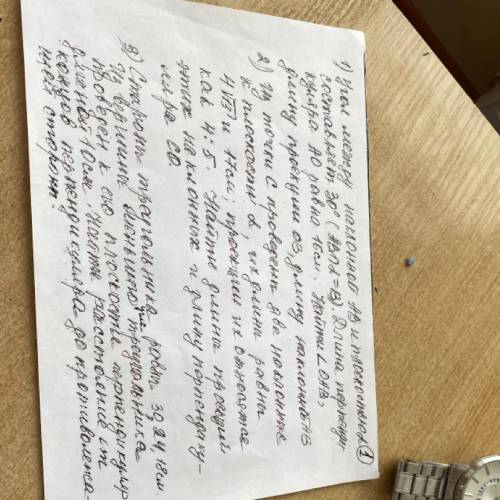 1) Угол между наклонной АВ и плоскостью 1
составляет 30° (АВ∩α=В). Длина перпенди-
куляра АО равна 16см. Найти ∠ОАВ,
длину проекции ОВ, длину наклонной АВ
2) Из точки С проведены две наклонные
к плоскости α, их длины равны
и 17см; проекции их относятся
как 4:5. Найти длины проекций
этих наклонных и длину перпендику-
ляра СО
3) Стороны треугольника равны 30, 24, 18см.
Из вершины меньшего
проведен к его плоскости перпендикуляр
длиной 10см. Найти расстояние от
концов перпендикуляра до противолежа-
щей стороны.